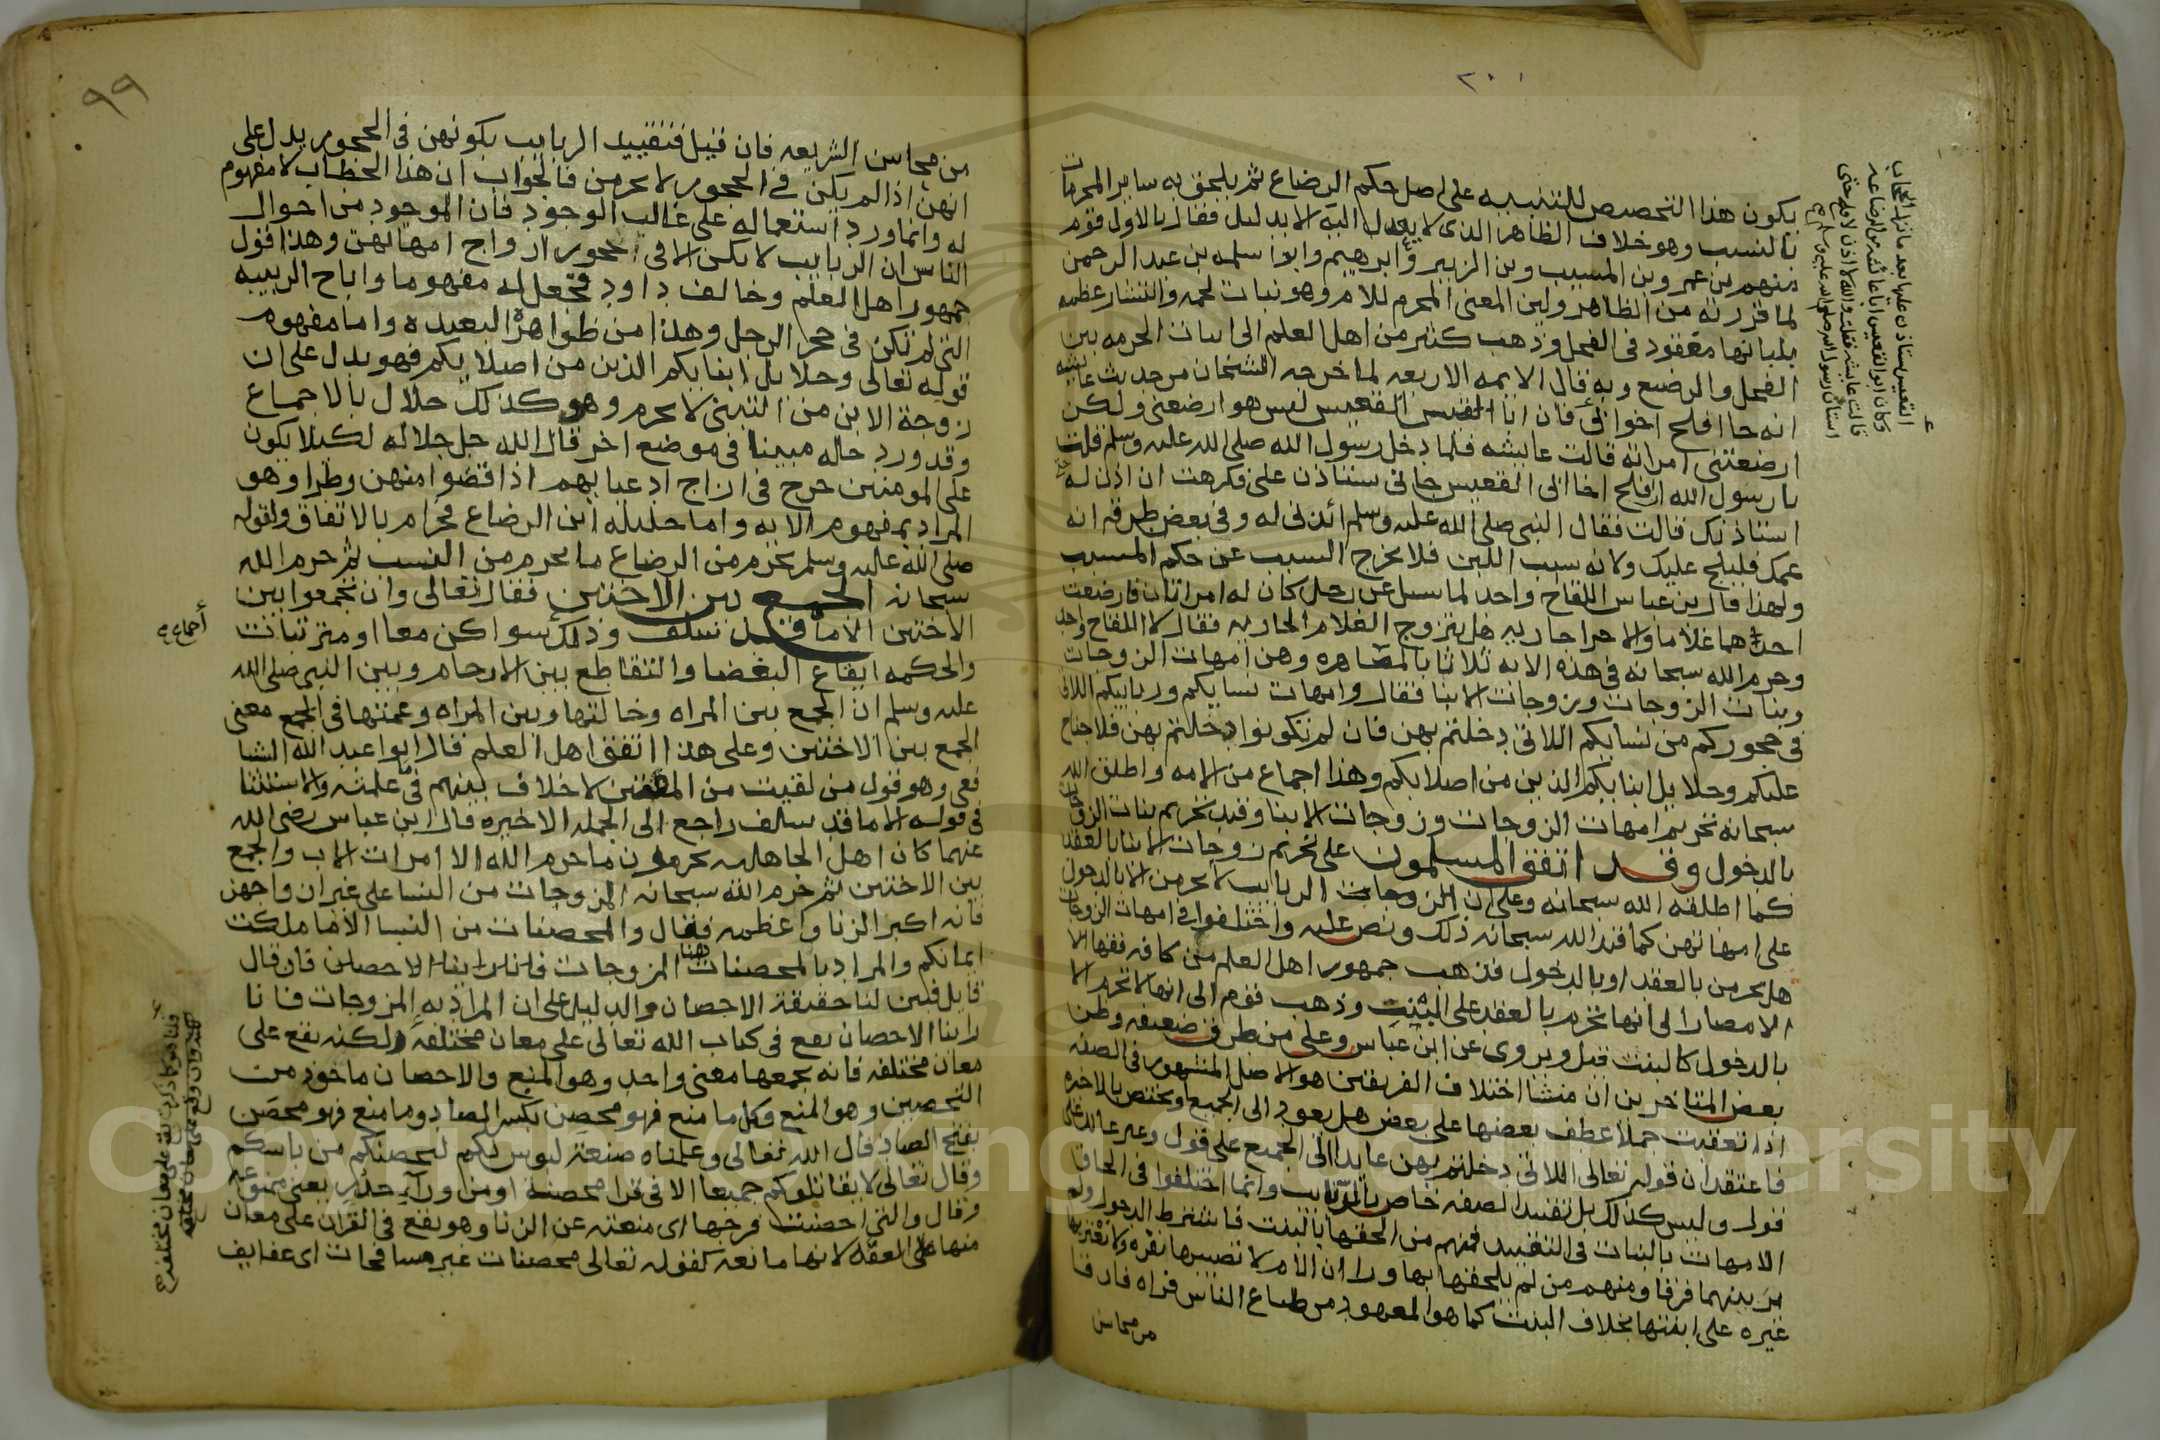 ٢٠١
يكون هذا التخصيص للتنبيه على اصل حكم الرضاع ثم يلحق به ساير المحرمات
بالنسب وهو خلاف الظاهر الذى لا يعدل اليه الا بدليل فقال بالاول قوم
منهم بن عمر وبن المسيب وبن الزبير وابرهيم وابوا سلمه بن عبد الرحمن
لما قررته من الظاهر ولين المعنى المحرم للام وهو نبات لحمه وانتشار عظمه
بلبانها مفقود فى الفحل وذهب كثير من اهل العلم الى اثبات الحرمه بين
الفحل والرضيع وبه قال الايمه الاربعه لما خرجه الشيخان من حديث عايشه
انه جا افلح اخوا ابى القعيس ليس هو ارضعنى ولكن
ارضعتنى امراته قالت عايشه فلما دخل رسول الله صلى الله عليه وسلم قلت
يا رسول الله ان افلح اخا ابى القعيس جانى ستاذن على فكرهت ان اذن له
استاذنك قالت فقال النبى صلى الله عليه وسلم ائذنى له وفى بعض طرقه انه
عمك فليلج عليك ولانه سبب اللبن فلا يخرج السبب عن حكم المسبب
ولهذا قال بن عباس اللقاح واحد لما سيل عن رجل كان له امراتان فارضعت
احداهما غلاما والاخرا جاريه هل يتزوج الغلام الجاريه فقال لا اللقاح واحد
وحرم الله سبحانه فى هذه الايه ثلاثا بالمصاهره وهن امهات الزوجات
وبنات الزوجات وزوجات الابنا فقال وامهات نسايكم وربايبكم اللاتى
فى حجوركم من نسايكم اللاتى دخلتم بهن فان لم تكونوا دخلتم بهن فلا جناح
عليكم وحلايل ابنايكم الذين من اصلابكم وهذا اجماع من الامه واطلق الله
سبحانه تحريم امهات الزوجات وزوجات الابنا وقيد تحريم بنات الزوجات
بالدخول وقد اتفق المسلمون على تحريم زوجات الابنا بالعقد
كما اطلقه الله سبحانه وعلى ان الربايب لا يحرمن الا بالدخول
على امهاتهن كما قيد الله سبحانه ذلك ونص عليه واختلفوا فى امهات الزوجات
هل يحرمن بالعقد او بالدخول فذهب جمهور اهل العلم من كافه فقها
الامصار الى انها تحرم بالعقد على البنت وذهب قوم الى انها لا تحرم الا
بالدخول كالبنت قيل ويروى عن ابن عباس وعلى من طرق ضعيفه وظن
بعض المتاخرين ان منشا اختلاف الفريقين هو الاصل المشهور فى الصفه
اذا تعقبت جملا عطف بعضها على بعض هل يعود الى الجميع او يختص بالاخره
فاعتقد ان قوله تعالى اللاتى دخلتم بهن عايدا الى الجميع على قول
قول وليس كذلك بل تقييد الصفه خاص بالربايب وانما اختلفوا فى الحاق
الامهات بالبنات فى التقييد فمنهم من الحقها بالبنت فاشترط الدخول ولم
ير بينهما فرقا ومنهم من لم يلحقها بها وراا ان الام لا تصيبها نفره
غيره على ابنتها بخلاف البنت كما هو المعهود من طباع الناس فراه فارقا
من محاسن
القعيس ستاذن عليها بعد ما نزل الحجاب
وكان ابو القعيس ابا عائشه من الرضاعه
قالت عايشه فقلت والله لا اذن لافلح حتى
استاذن رسول الله صلى الله عليه وسلم
٩٩
من محاسن الشريعه فان قيل فتقييد الربايب بكونهن فى الحجور يدل على
انهن اذا لم يكن فى الحجور لا يحرمن فالجواب ان هذا الخطاب لا مفهوم
له وانما ورد استعماله على غالب الوجود فان الموجود من احوال
الناس ان الربايب لا يكن الا فى حجور ازواج امهاتهن وهذا قول
جمهور اهل العلم وخالف داود فجعل له مفهوما واباح الربيبه
التى لم تكن فى حجر الرجل وهذا من ظواهره البعيده واما مفهوم
قوله تعالى وحلايل ابنايكم الذين من اصلابكم فهو يدل على ان
زوجة الابن من التبنى لا يحرم وهو كذلك حلال بالاجماع
وقد ورد حاله مبينا فى موضع اخر قال الله جل جلاله لكيلا يكون
على المومنين حرج فى ازاج ادعيايهم اذا قضوا منهن وطرا وهو
المراد بمفهوم الايه واما حليلة ابن الرضاع فحرام بالاتفاق ولقوله
صلى الله عليه وسلم يحرم من الرضاع ما يحرم من النسب ثم حرم الله
سبحانه الجمع بين الاختين فقال تعالى وان تجمعوا بين
الاختين الا ما قد سلف وذلك سوا كن معا او مترتبات
والحكمه ايقاع البغضا والتقاطع بين الارحام وبين النبى صلى الله
عليه وسلم ان الجمع بين المراه وخالتها وبين المراه وعمتها فى الجمع معنى
الجمع بين الاختين وعلى هذا اتفق اهل العلم قال ابوا عبد الله الشا
فعى وهو قول من لقيت من المفتين لا خلاف بينهم فى ما علمته والاستثنا
فى قوله الا ما قد سلف راجع الى الجمله الاخيره قال ابن عباس رضى الله
عنهما كان اهل الجاهليه يحرمون ما حرم الله الا امرات الاب والجمع
بين الاختين ثم حرم الله سبحانه المزوجات من النسا على غير ازواجهن
فانه اكبر الزنا واعظمه فقال والمحصنات من النسا الا ما ملكت
ايمانكم والمراد بالمحصنات هنا المزوجات فان قال
قايل فبين لنا حقيقة الاحصان والدليل على ان المراد به المزوجات فانا
راينا الاحصان يقع فى كتاب الله تعالى على معان مختلفه ولكنه يقع على
معان مختلفه فانه يجمعها معنى واحد وهو المنع والاحصان ماخوذ من
التحصين وهو المنع وكل ما منع فهو محصِن بكسر الصاد وما منع فهو محصَن
بفتح الصاد قال الله تعالى وعلمناه صنعة لبوس لكم لتحصنكم من باسكم
وقال تعالى لا يقاتلوكم جميعا الا فى قرا محصنة او من ورآ جدر يعنى ممنوعه
وقال والتى احصنت فرجها اى منعته عن الزنا وهو يقع فى القران على معان
منها على العفة لانها مانعه كقوله تعالى محصنات غير مسافحات اى عفايف
أجماع
قلنا هو كما ذكرت يقع على معان مختلفه